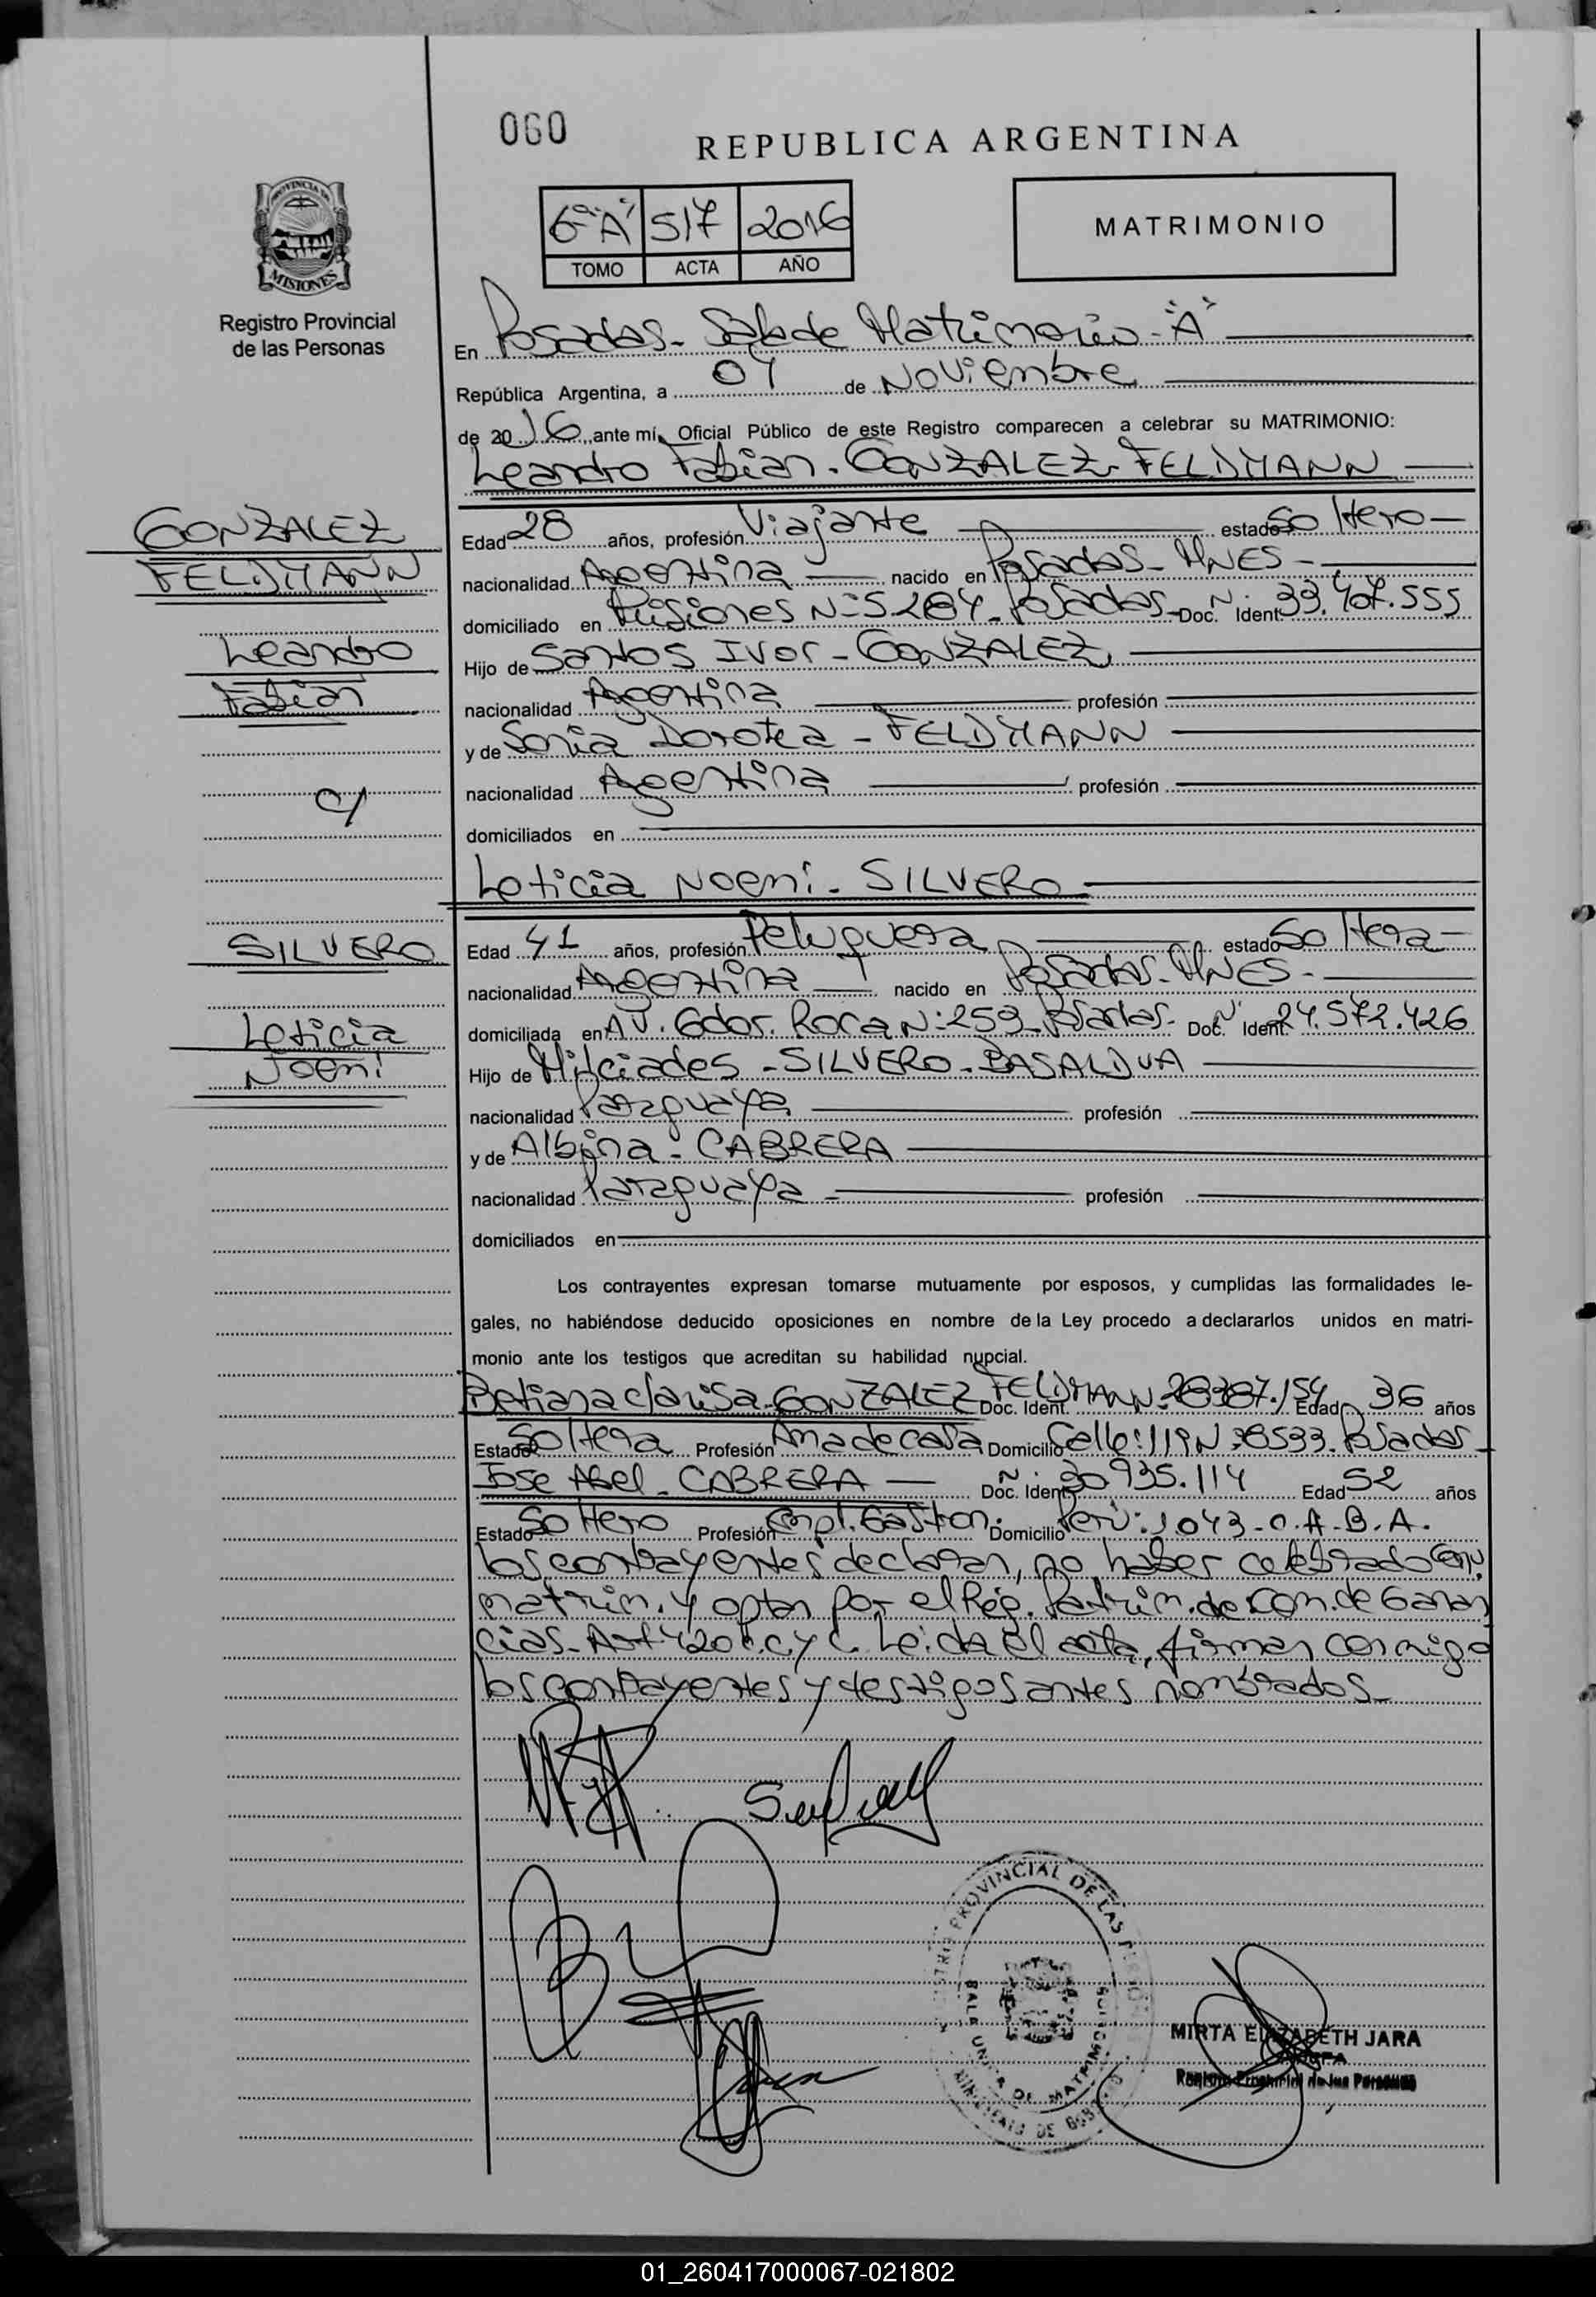 060
REPUBLICA ARGENTINA
6º "A" 517 2016
TOMO ACTA AÑO
MATRIMONIO
PROVINCIA DE
MISIONES
Registro Provincial
de las Personas
En Posadas - Sala de Matrimonios - "A"
República Argentina, a 04 de Noviembre
de 2016, ante mí, Oficial Público de este Registro comparecen a celebrar su MATRIMONIO:
Leandro Fabian - GONZALEZ - FELDMANN
GONZALEZ
FELDMANN
Leandro
Fabian
c/
SILVERO
Leticia
Noemi
Edad 28 años, profesión Viajante estado Soltero
nacionalidad Argentina nacido en Posadas - MNES -
domiciliado en Misiones Nº 5284 - Posadas - Doc. Ident. Nº 33.407.555
Hijo de Santos Ivor - GONZALEZ
nacionalidad Argentina profesión
y de Sonia Dorotea - FELDMANN
nacionalidad Argentina profesión
domiciliados en
Leticia Noemi - SILVERO
Edad 41 años, profesión Peluquera estado Soltera
nacionalidad Argentina nacido en Posadas - MNES -
domiciliada en AV. Gdor. Roca Nº 259 - Posadas - Doc. Ident. Nº 24.572.426
Hijo de Milciades - SILVERO - BASALDUA
nacionalidad Paraguaya profesión
y de Albina - CABRERA
nacionalidad Paraguaya profesión
domiciliados en
Los contrayentes expresan tomarse mutuamente por esposos, y cumplidas las formalidades le-
gales, no habiéndose deducido oposiciones en nombre de la Ley procedo a declararlos unidos en matri-
monio ante los testigos que acreditan su habilidad nupcial.
Betiana Clarisa - GONZALEZ FELDMANN - Doc. Ident. 28387.154 Edad 36 años
Estado Soltera Profesión Ama de casa Domicilio Calle: 119 Nº 8533 - Posadas -
Jose Abel - CABRERA - Doc. Ident. Nº 30 935.114 Edad 52 años
Estado Soltero Profesión Empl. Gastron. Domicilio Perú: 1043 - C.A.B.A.
los contrayentes declaran, no haber celebrado Conv.
matrim. y optan por el Rég. Patrim. de Com. de Ganan
cias - Art 420 C. C y C. Leida el acta, firman conmigo
los contrayentes y testigos antes nombrados -
PROVINCIAL DE LAS
SALA DE MATRIMONIOS
MIRTA ELIZABETH JARA
Registro Provincial de las Personas
01_260417000067-021802